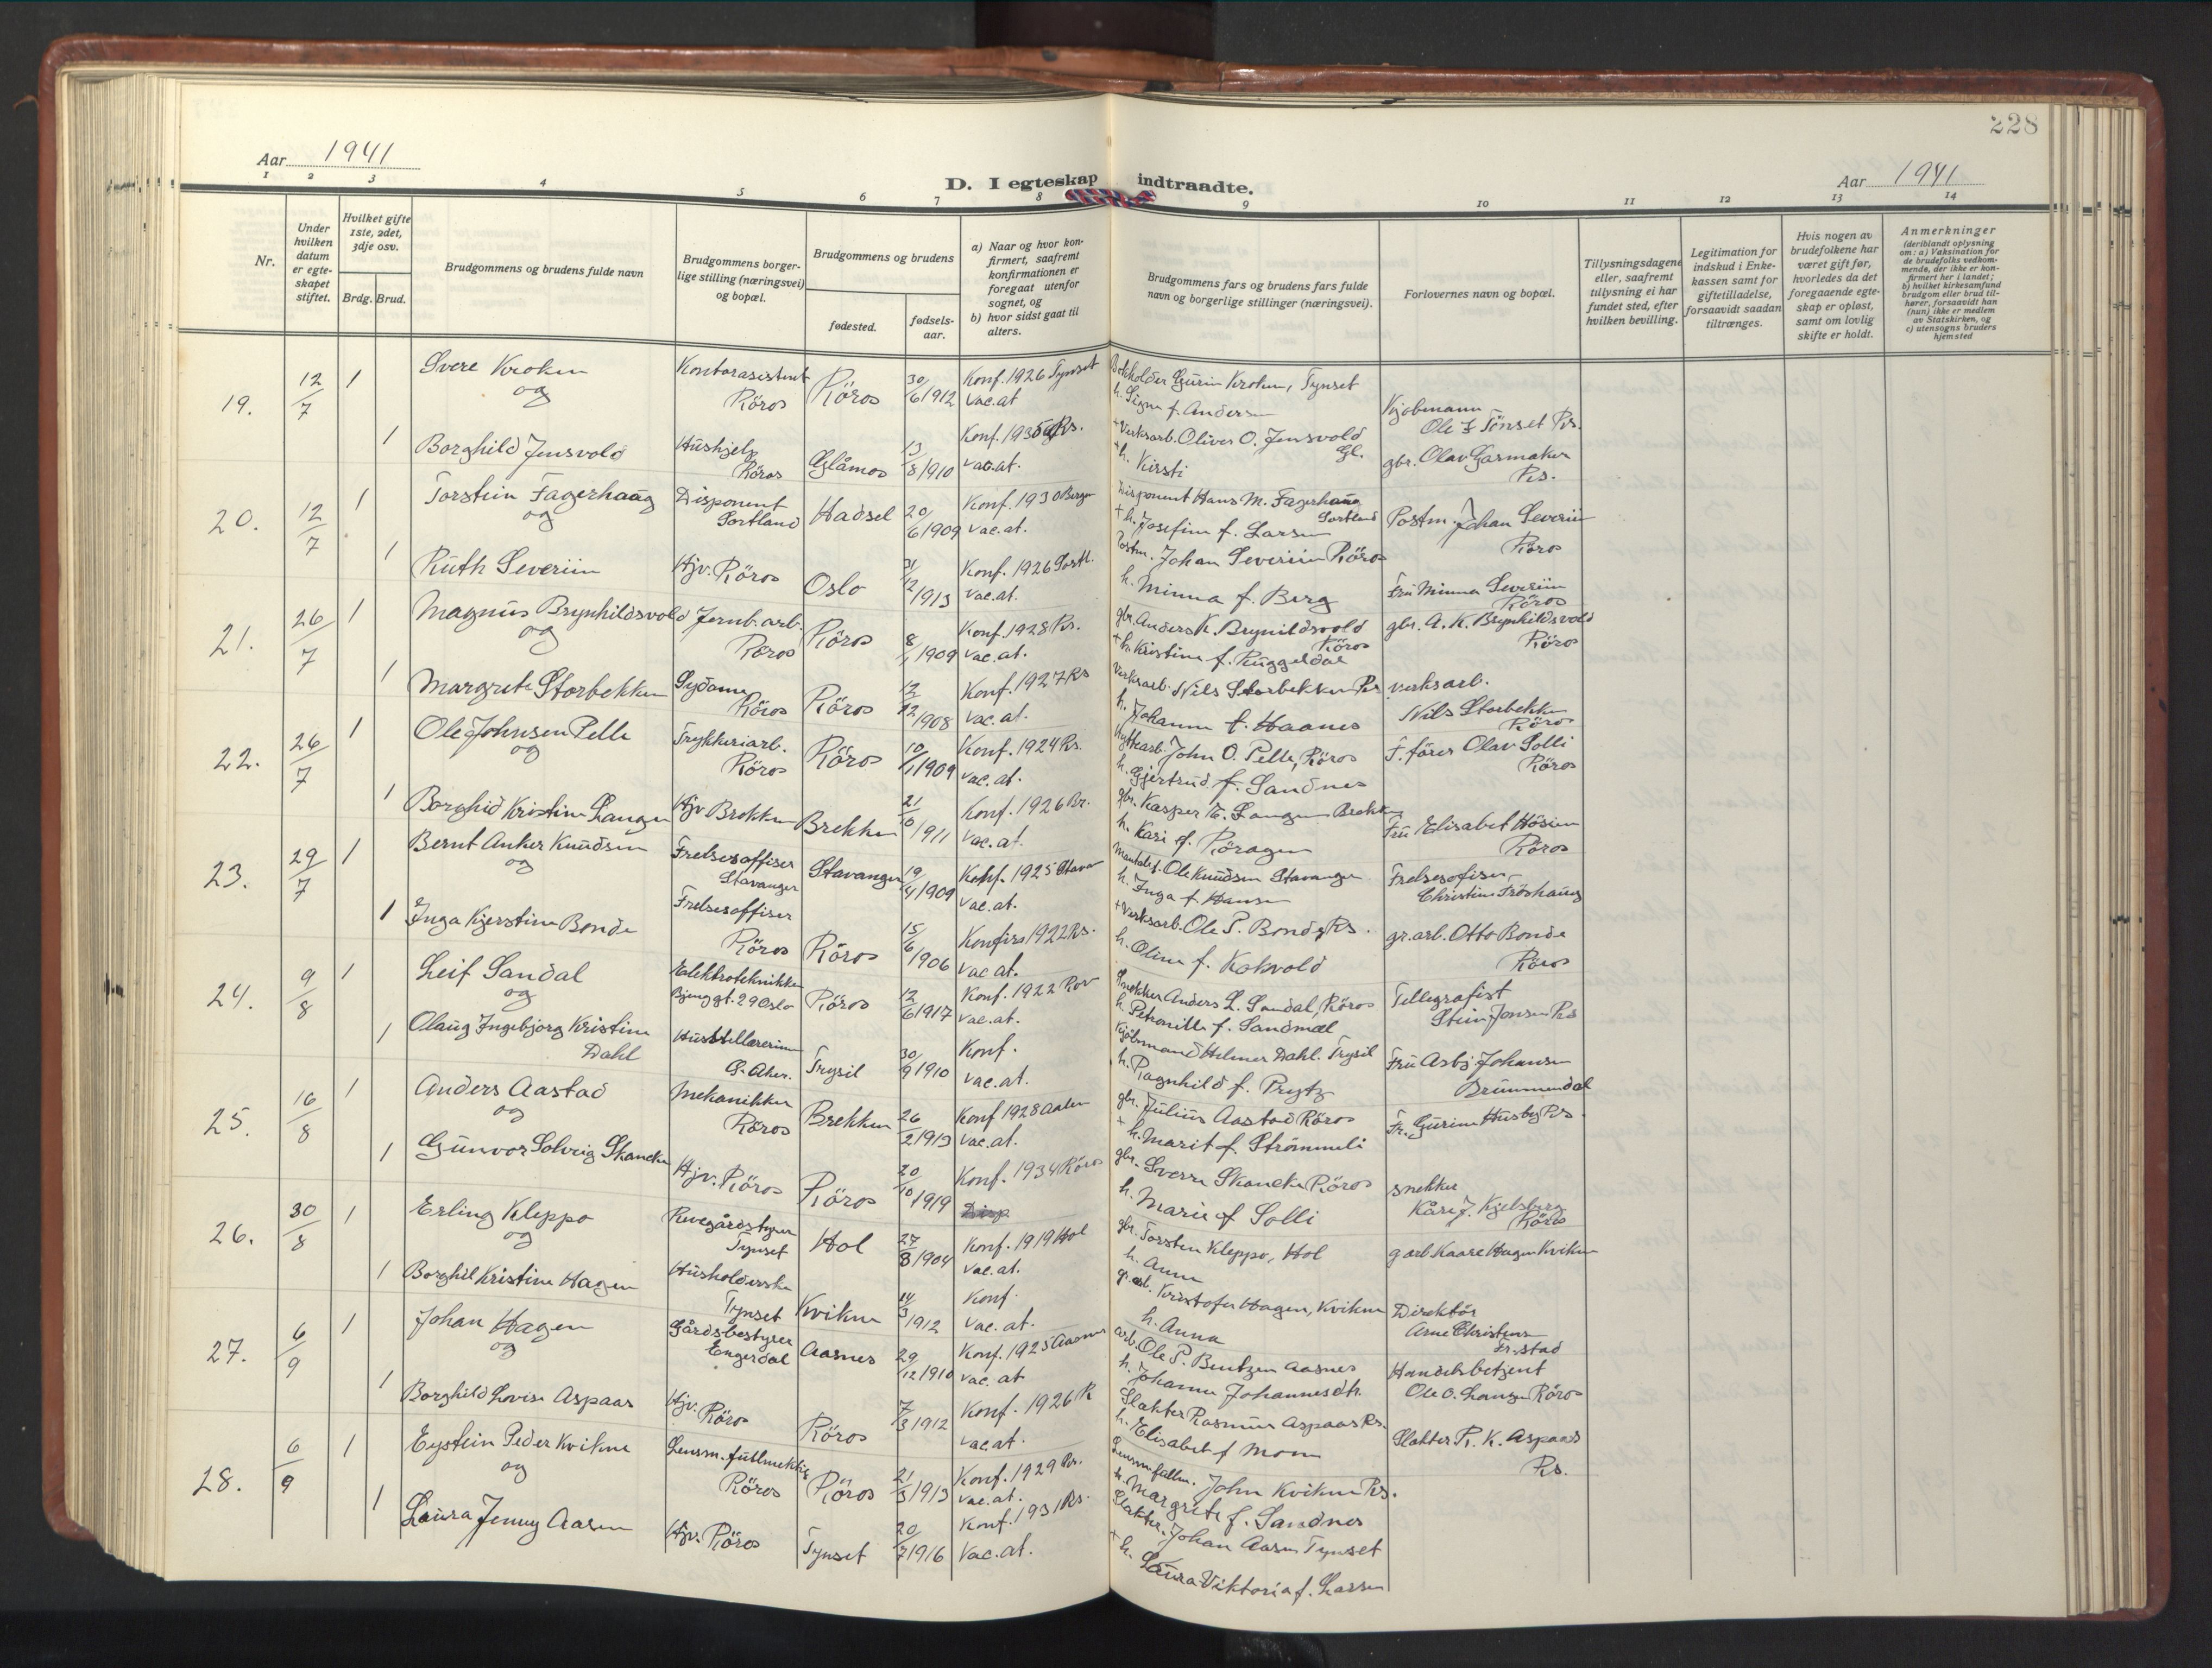 228
Aar 1941
D. I egteskap indtraadte.
Aar 1941
1 2 3 4 5 6 7 8 9 10 11 12 13 14
Nr.
Under hvilken datum er egteskapet stiftet.
Hvilket gifte 1ste, 2det, 3dje osv.
Brdg. Brud.
Brudgommens og brudens fulde navn
Brudgommens borgerlige stilling (næringsvei) og bopæl.
Brudgommens og brudens
fødested.
fødselsaar.
a) Naar og hvor konfirmert, saafremt konfirmationen er foregaat utenfor sognet, og
b) hvor sidst gaat til alters.
Brudgommens fars og brudens fars fulde navn og borgerlige stillinger (næringsvei).
Forlovernes navn og bopæl.
Tillysningsdagene eller, saafremt tillysning ei har fundet sted, efter hvilken bevilling.
Legitimation for indskud i Enkekassen samt for giftetilladelse, forsaavidt saadan tiltrænges.
Hvis nogen av brudefolkene har været gift før, hvorledes da det foregaaende egteskap er opløst, samt om lovlig skifte er holdt.
Anmerkninger
(deriblandt oplysning om: a) Vaksination for de brudefolks vedkommende, der ikke er konfirmert her i landet; b) hvilket kirkesamfund brudgom eller brud tilhører, forsaavidt han (hun) ikke er medlem av Statskirken, og c) utensogns bruders hjemsted
19. 12/7 1 Svere Kroken og Kontorasistent Röros Röros 30/6 1912 Konf. 1926 Tynset vac. at Bokholder Gurin Kroken, Tynset h. Signe f. Andersen Kjøbmann Ole J Tönset Rs.
1 Borghild Jensvold Hushjelp Röros Glåmos 13/8 1910 Konf. 1925 Rs. vac. at. + Verksarb. Oliver O. Jensvold Gl. + h. Kirsti gbr. Olav Garmaker Rs.
20. 12/7 1 Torstein Fagerhaug og Disponent Sortland Hadsel 20/6 1909 Konf. 1930 Bergen vac. at. Disponent Hans M. Fagerhaug Sortland + h. Josefine f. Larsen Postm. Johan Severiin Röros
1 Ruth Severiin Hjv. Röros Oslo 31/12 1913 Konf. 1926 Sortl. vac. at. Postm. Johan Severiin Röros h. Minna f. Berg Fru Minna Severiin Röros
21. 26/7 1 Magnus Brynhildsvold og Jernb. arb. Röros Röros 8/1 1909 Konf. 1928 Rs. vac. at. gbr. Anders K. Brynildsvold Röros + h. Kristine f. Ruggeldal gbr. A. K. Brynhildsvold Röros
1 Margrete Storbekken Sydame Röros Röros 12/12 1908 Konf. 1927 Rs vac. at. Verksarb. Nils Storbekken Rs h. Johanne f. Haanes verksarb. Nils Storbekken Röros
22. 26/7 1 Ole Johnsen Pelle og Trykkeriarb. Röros Röros 10/1 1909 Konf. 1924 Rs. vac. at. Hyttearb. John O. Pelle, Röros h. Gjertrud f. Sandnes F. förer Olav Solli Röros
1 Borghid Kristine Langen Hjv Brekken Brekken 21/10 1911 Konf. 1926 Br. vac. at. gbr. Kasper E. Langen Brekken h. Kari f. Röragen Fru Elisabet Hösien Röros
23. 29/7 1 Bernt Anker Knudsen og Frelsesoffiser Stavanger Stavanger 19/4 1909 Konf. 1925 Stavan vac. at. Ole Knudsen Stavanger h. Inga f. Hansen Frelsesofiser Christine Fröshaug
1 Inga Kjerstine Bonde Frelsesoffiser Röros Röros 15/6 1906 Konfirs 1922 Rs. vac at. + Verksarb. Ole P. Bonde, Rs. h. Oline f. Kokvold gr. arb. Otto Bonde Röros
24. 9/8 1 Leif Sandal og Elektrotekniker 29 Oslo Röros 12/6 1917 Konf. 1922 Rör vac. at. Snekker Anders L. Sandal, Röros h. Petronille f. Sandmæl Tellegrafist Stein Jensen Rs
1 Olaug Ingebjorg Kristine Dahl Husstellærerinne Ö. Aker. Trysil 30/9 1910 Konf. vac. at. Kjöbmand Helmer Dahl. Trysil h. Ragnhild f. Prytz Fru Asbj Johansen Drummendal
25. 16/8 1 Anders Aastad og Mekanikker Röros Brekken 26/2 1913 Konf 1928 Aalen vac. at. gbr. Julius Aastad Röros + h. Marit f. Strömmeli Fr. Gurine Husby Rs.
1 Gunvor Solveig Skancke Hjv. Röros Röros 20/10 1919 Konf. 1934 Röros gbr. Sverre Skancke Röros h. Marie f Solli snekker Kåre J. Kjelsberg Röros
26. 30/8 1 Erling Kleppo og Revegårdstyrer Tynset Hol 27/8 1904 Konf. 1919 Hol vac. at. gbr. Torsten Kleppo, Hol h. Anne g arb Kaare Hagen Kvikne
1 Borghil Kristine Hagen Husholderske Tynset Kvikne 14/3 1912 Konf. vac. at. gr. arb. Kristofer Hagen, Kvikne h. Anna Direktör Arne Christensen Fr.stad
27. 6/9 1 Johan Hagen og Gårdsbestyrer Engerdal Aasnes 29/12 1910 Konf. 1925 Aasnes vac. at arb. Ole P. Bentzen Aasnes h. Johanne Johannesdtr. Handelsbetjent Ole O. Langen Röros
1 Borghild Lovise Aspaas Hjv. Röros Röros 7/3 1912 Konf. 1926 R vac at. Slakter Rasmus Aspaas Rs. h. Elisabet f Moen Slakter R. K. Aspaas Rs.
28. 6/9 1 Eystein Peder Kvikne og Lensm. fullmektig Röros Röros 21/3 1913 Konf. 1929 Rs. vac. at. Lensm fullm. John Kvikne Rs. h. Margrete f. Sandnes
1 Laura Jenny Aasen Hjv. Röros Tynset 20/7 1916 Konf. 1931 Rs. Vac. at. Slakter. Johan Aasen Tynset + h. Laura Viktoria f. Larsen